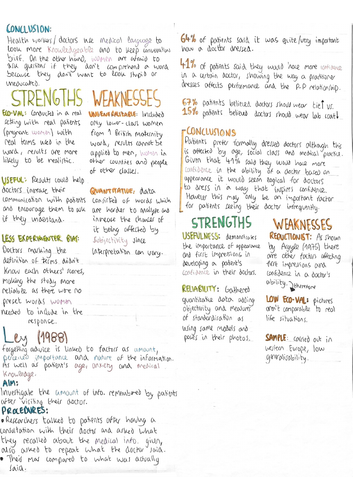 CONCLUSION:
Health workers/doctors use medical language to
look more knowledgeable and to keep conversation
brief. On the other hand, women are afraid to
ask questions if they don't comprehend a word
because they don't want to look stupid or
uneducated.
STRENGTHS WEAKNESSES
ECO-VAL: conducted in a real
setting with real patients
(pregnant women) with
real terms used in the
ward, results are more
likely to be realistic.
USEFUL: Results could help
doctors increase their
communication with patients
and encourage them to ask
if they understand.
LESS EXPERIMENTER BIAS:
Doctors marking the
definition of terms didn't
know each others' names,
making the study more
reliable as there were no
preset words women
needed to include in the
response.
UNGENERALISABLE: Included
only lower-class women
from 1 British maternity
ward, results cannot be
applied to men, women in
other countries and people
of other classes.
QUANTITATIVE: data
consisted of words which
are harder to analyse and
increase the chances of
it being affected by
subjectivity since
interpretation can vary.
Ley (1988)
Forgetting advice is linked to factors as amount,
perceived importance and nature of the information.
As well as patient's age, anxiety and medical
knowledge.
AIM:
Investigate the amount of info. remembered by patients
after visiting their doctor.
PROCEDURES:
• Researchers talked to patients after having a
consultation with their doctor and asked what
they recalled about the medical info. given,
also asked to repeat what the doctor said.
• This was compared to what was actually
said.
64% of patients said it was quite/very important
how a doctor dressed.
41% of patients said they would have more confidence
in a certain doctor, showing the way a practitioner
dresses affects performance and the P.P relationship.
67% patients believed doctors should wear ties
15% patients believed doctors should wear lab coats
CONCLUSIONS
Patients prefer formally dressed doctors although this
is affected by age, social class and medical practice.
Given that 41% said they would have more
confidence in the ability of a doctor based on
appearance it would seem logical for doctors
to dress in a way that inspires confidence.
However this may only be an important factor
for patients seeing their doctor infrequently.
STRENGTHS WEAKNESSES
USEFULNESS: demonstrates
the importance of appearance
and first impressions in
developing a patient's
confidence in their doctor.
RELIABILITY: Gathered
quantitative data adding
objectivity and measures
of standardisation as
using same models and
poses in their photos.
REDUCTIONIST: As shown
by Argyle (1975) there
are other factors affecting
first impressions and
confidence in a doctor's
ability.
LOW ECO-VAL: pictures
aren't comparable to real
life situations.
SAMPLE: carried out in
western Europe, low
generalisability.